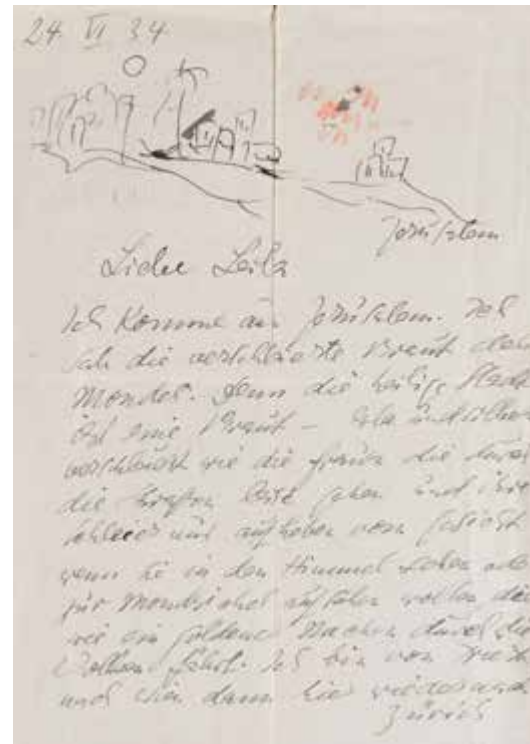 24. VI 34.
Jerusalem
Liebe Leila
Ich komme aus Jerusalem. Ich
sah die verschleierte Braut des
Mondes. Denn die heilige Stadt
ist eine Braut –
verschleiert wie die Frauen die durch
die gehen und ihre
Schleier nur aufheben vom Gesicht
wenn sie in den Himmel sehen
zur Mondsichel wollen die
wie ein goldener Nachen durch die
Wolken fährt. Ich bin von
und dann hier wieder nach
Zürich